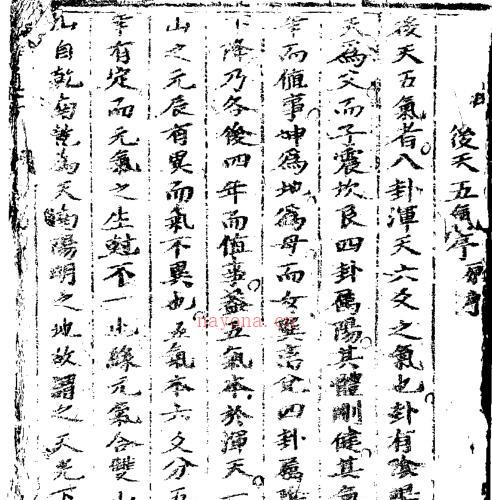 後天五氣
後天五氣者八卦渾天六爻之氣也卦有陰
天爲父而子震坎艮四卦爲陽其體剛健其氣
年而值事坤爲地爲母而女巽离兌四卦屬
下降乃各後四年而值事蓋五氣本於渾天一
山之元辰有異而氣不異也五氣本六爻分五
年有定而元氣之生尅不一也緣元氣合雙山
自乾爲天陽明之地故謂之天光下
nayona.cn